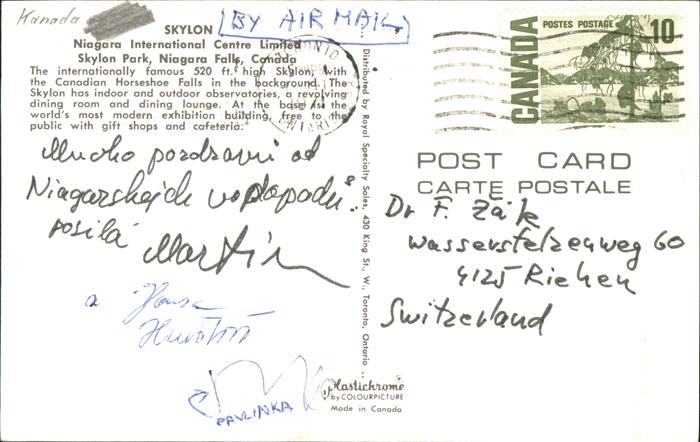 Kanada
SKYLON
(BY AIR MAIL)
Niagara International Centre Limited
Skylon Park, Niagara Falls, Canada
The internationally famous 520 ft. high Skylon, with
the Canadian Horseshoe Falls in the background. The
Skylon has indoor and outdoor observatories, a revolving
dining room and dining lounge. At the base is the
world's most modern exhibition building, free to the
public with gift shops and cafeteria.
Mucho pozdravů od
Niagarskejch vodopadů.
posílá
Martin
a Hanza
PAVLINKA
Distributed by Royal Specialty Sales, 430 King St., W., Toronto, Ontario
Plastichrome
by COLOURPICTURE
Made in Canada
POSTES POSTAGE
10
CANADA
POST CARD
CARTE POSTALE
Dr F. Žák
Wasserstelzenweg 60
4125 Riehen
Switzerland